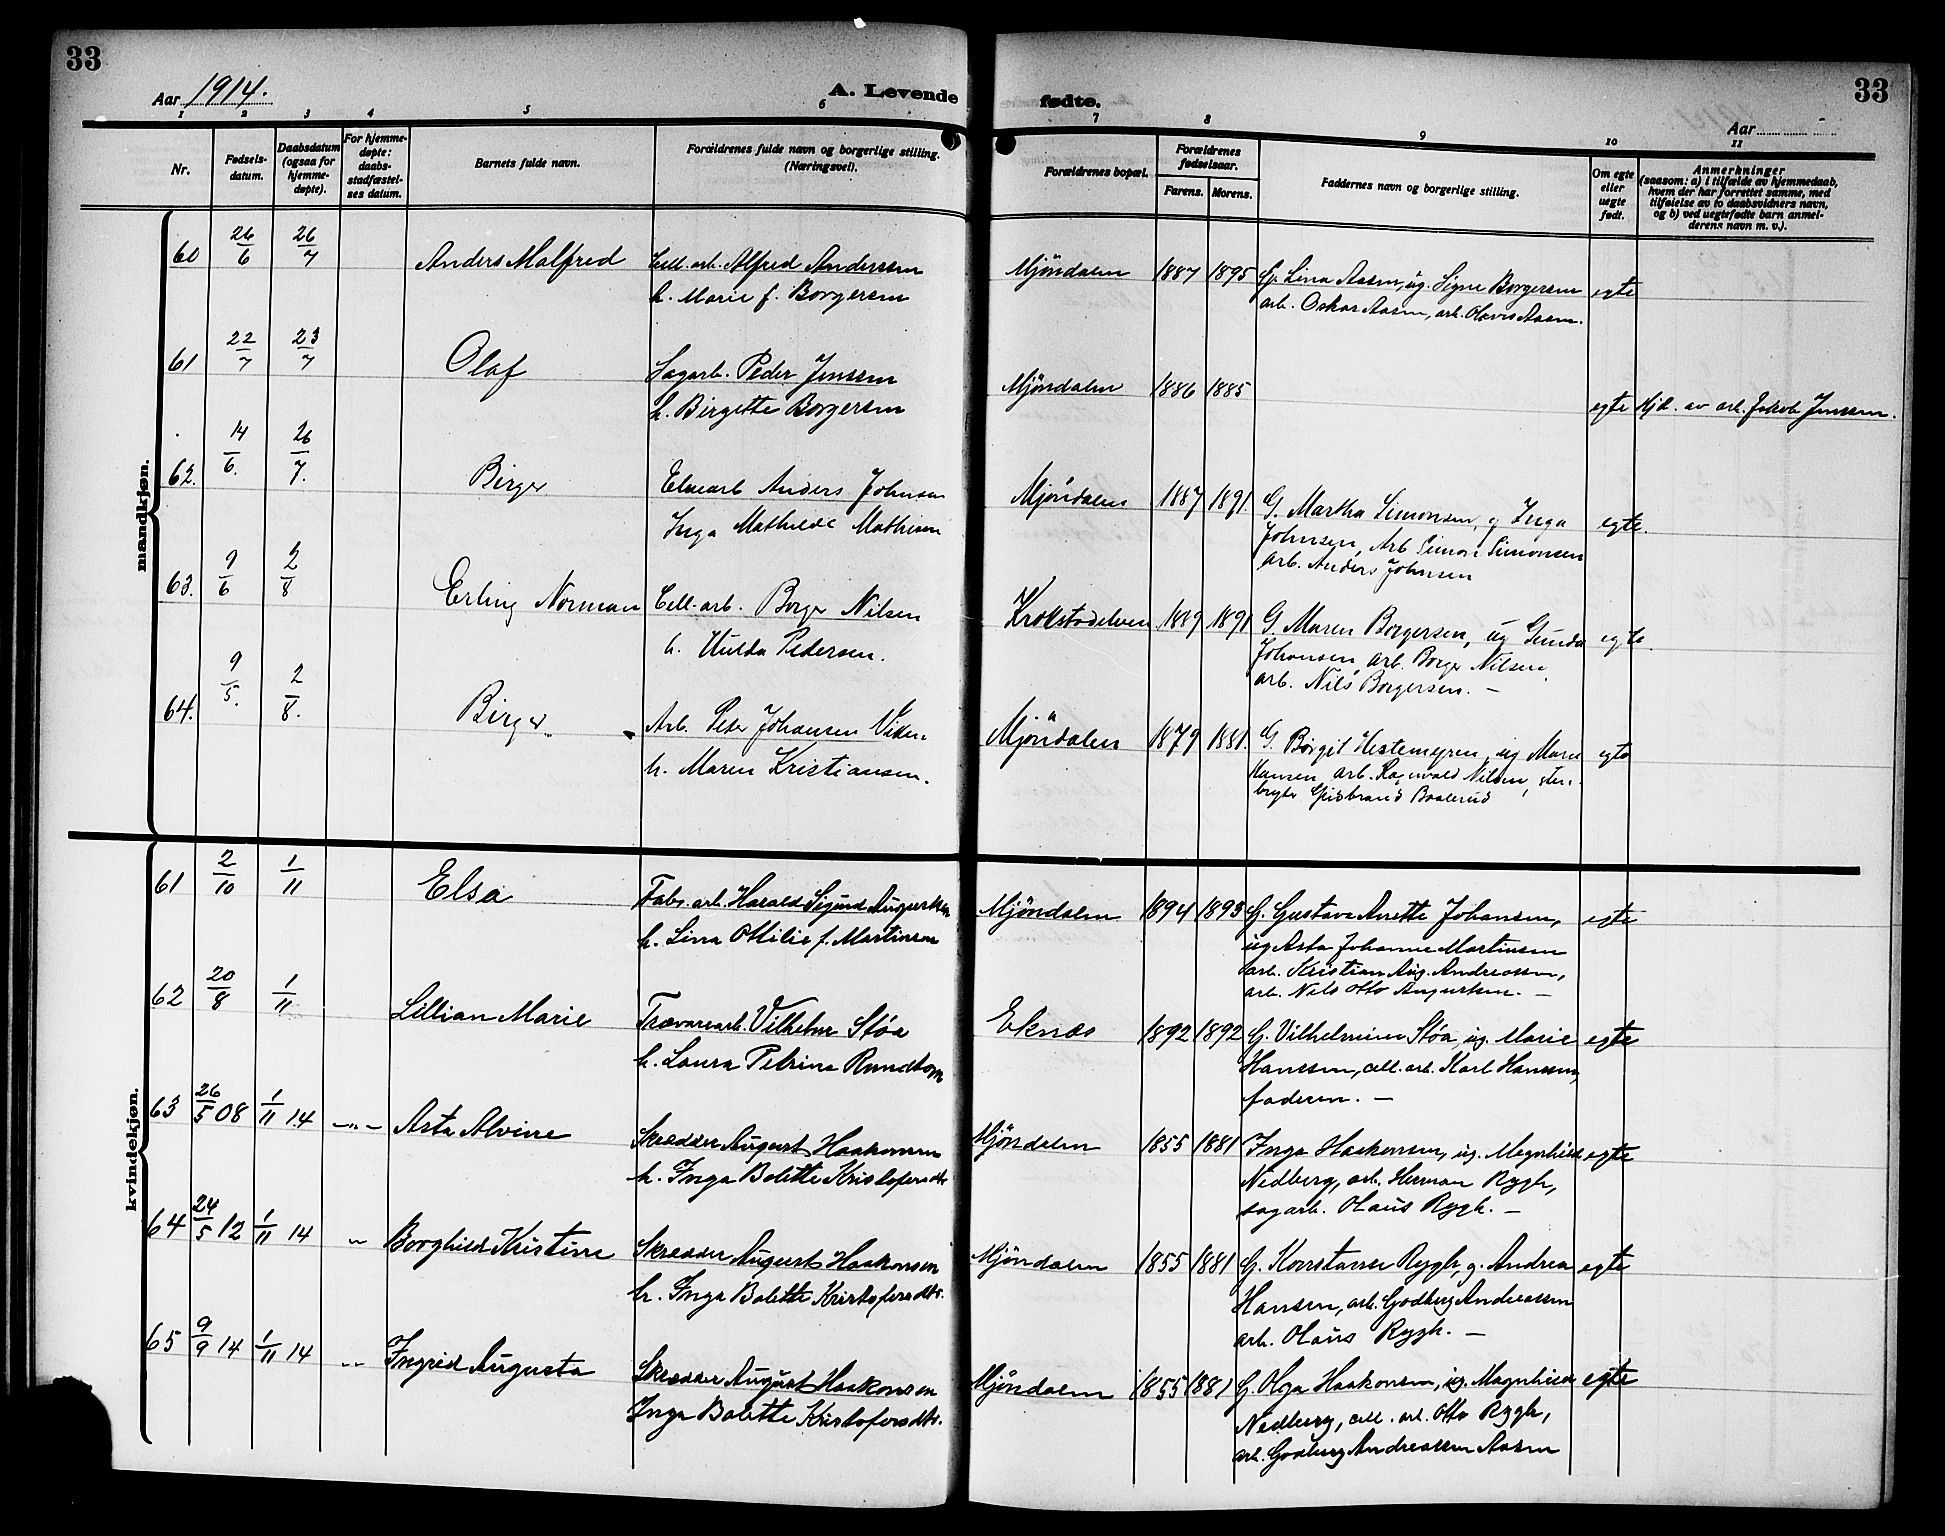 33
33
Aar 1914.
A. Levende
fødte.
Aar
1 2 3 4 5 6 7 8 9 10 11
Nr.
Fødsels-
datum.
Daabsdatum
(ogsaa for
hjemme-
døpte).
For hjemme-
døpte:
daabs-
stadfæstel-
ses datum.
Barnets fulde navn.
Forældrenes fulde navn og borgerlige stilling.
(Næringsvei).
Forældrenes bopæl.
Forældrenes
fødselsaar.
Farens. Morens.
Faddernes navn og borgerlige stilling.
Om egte
eller
uegte
født.
Anmerkninger
(saasom: a) i tilfælde av hjemmedaab,
hvem der har forrettet samme, med
tilføielse av to daabsvidners navn,
og b) ved uegtefødte barn anmel-
derens navn m. v.).
mandkjøn.
60 26/6 26/7 Anders Malfred Cell. arb. Alfred Anderssen Mjöndalen 1887 1895 G. Lina Aasen, ug. Signe Borgersen egte
h. Marie f. Borgersen arb. Oskar Aasen, arb. Olavis Aasen.
61 22/7 23/7 Olaf Sagarb. Peder Jenssen Mjöndalen 1886 1885 egte Hjd. av arb. Jakob Jenssen.
h. Birgitte Borgersen
62. 14/6. 26/7. Birger Anders Johnsen Mjöndalen 1887 1891. G. Martha Simonsen, g Inga egte.
Inga Mathilde Mathisen Johnsen, Arb Simon Simonsen
arb. Anders Johnsen
63. 9/6 2/8 Erling Norman Cell. arb. Borger Nilsen Krokstadelven 1889 1891 G. Maren Borgersen, ug Gunda egte.
h. Hulda Pedersen. Johansen, arb. Borge Nilsen,
arb. Nils Borgersen. —
64. 9/5. 2/8. Birger Arb. Peter Johansen Mjöndalen 1879 1881. G. Börgit Hestemyren, ug Maren egte
h. Maren Kristiansen. Hansen, arb. Ragnvald Nilsen, sten-
bryter Gudbrand Braaterud
kvindekjøn.
61 2/10 1/11 Elsa Fabr. arb. Harald Sigurd Augustsen Mjöndalen 1894 1893 G. Gustava Anette Johansen, egte
h. Lina Ottilie f. Martinsen ug Asta Johanne Martinsen
arb. Kristian Aug. Andreassen,
arb. Nils Otto Augustsen. —
62 20/8 1/11 Lillian Marie Trævarearb. Vilhelm Støa Eknæs 1892 1892 G. Vilhelmine Støa, ug. Marie egte
h. Laura Petrine Rundtom Hanssen, cell. arb. Karl Hanssen,
faderen. —
63 26/5 08 1/11 14 —"— Asta Alvine Skrædder August Haakonsen Mjöndalen 1855 1881 Inga Haakonsen, ug. Magnhild egte
h. Inga Bolette Kristofersdtr. Nedberg, arb. Herman Rygh,
sagarb. Olaus Rygh. —
64 24/5 12 1/11 14 " Borghild Kristine Skrædder August Haakonsen Mjöndalen 1855 1881 G. Konstanse Rygh, g. Andrea egte
h. Inga Bolette Kristofersdtr. Hansen, arb. Godberg Andreassen
arb. Olaus Rygh. —
65 9/9 14 1/11 14 " Ingrid Augusta Skrædder August Haakonsen Mjöndalen 1855 1881 G. Olga Haakonsen, ug. Magnhild egte
Inga Bolette Kristofersdtr. Nedberg, cell. arb. Otto Rygh,
arb. Godberg Andreassen Aasen